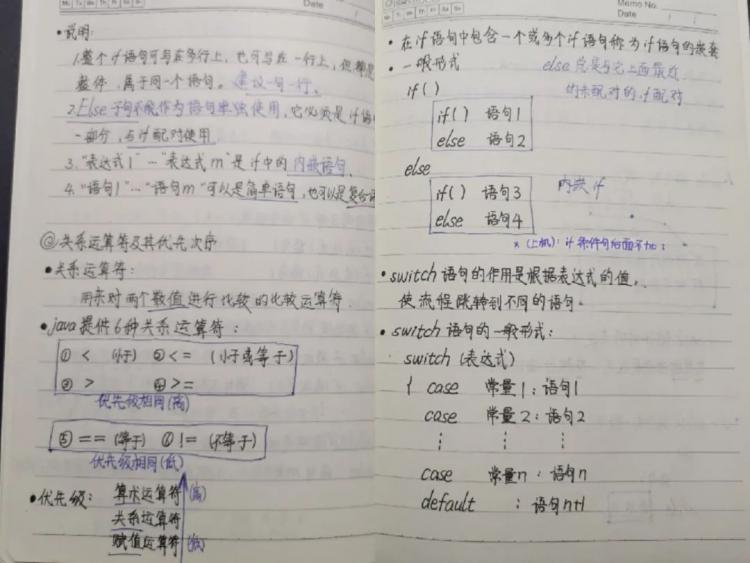 Mo Tu We Th Fr Sa Su
Date
•说明:
1.整个if语句可写在多行上，也可写在一行上，但都是
整体，属于同一个语句。建议一句一行。
2.Else子句不能作为语句单独使用，它必须是if语句
一部分，与if配对使用
3."表达式1"…"表达式m"是if中的内嵌语句.
4."语句1"…"语句m"可以是简单语句，也可以是复合语
②关系运算符及其优先次序
•关系运算符:
用来对两个数值进行比较的比较运算符
•java提供6种关系运算符:
① < (小于) ② <= (小于或等于)
③ > ④ >=
优先级相同(高)
⑤ == (等于) ⑥ != (不等于)
优先级相同(低)
•优先级: 算术运算符 (高)
关系运算符
赋值运算符 (低)
Memo No.
Mo Tu We Th Fr Sa Su
Date
•在if语句中包含一个或多个if语句称为if语句的嵌套
•一般形式 else总是与它上面最近
if() 的未配对的if配对
if() 语句1
else 语句2
else
if() 语句3 内嵌if
else 语句4
*(上机): if条件句后面不加;
•switch语句的作用是根据表达式的值,
使流程跳转到不同的语句。
•switch语句的一般形式:
switch (表达式)
{ case 常量1: 语句1
case 常量2: 语句2
⋮ ⋮ ⋮
case 常量n: 语句n
default : 语句n+1